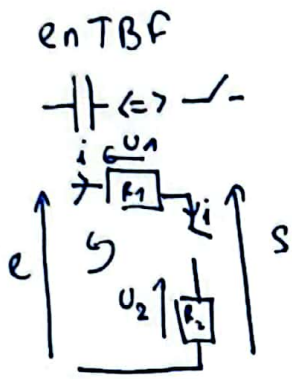 en TBF
<=>
i U1
R1
i
e
S
U2
R2